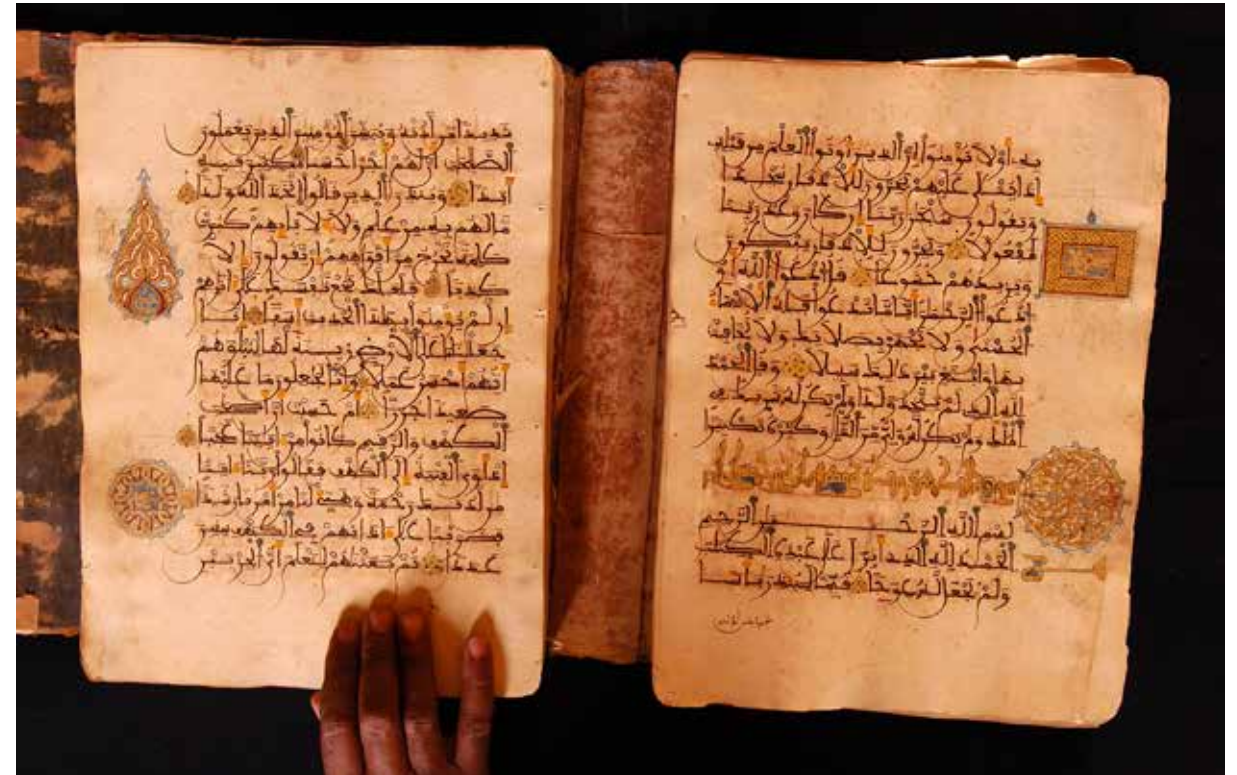 به أو لا تؤمنوا إن الذين أوتوا العلم من قبله
إذا يتلى عليهم يخرون للأذقان سجدا
ويقولون سبحن ربنا إن كان وعد ربنا
لمفعولا ويخرون للأذقان يبكون
ويزيدهم خشوعا قل ادعوا الله أو
ادعوا الرحمن أيا ما تدعوا فله الأسماء
الحسنى ولا تجهر بصلاتك ولا تخافت
بها وابتغ بين ذلك سبيلا وقل الحمد
لله الذي لم يتخذ ولدا ولم يكن له شريك في
الملك ولم يكن له ولي من الذل وكبره تكبيرا
بسم الله الرحمن الرحيم
الحمد لله الذي أنزل على عبده الكتب
ولم يجعل له عوجا قيما لينذر بأسا
شديدا من لدنه ويبشر المؤمنين الذين يعملون
الصلحت أن لهم أجرا حسنا مكثين فيه
أبدا وينذر الذين قالوا اتخذ الله ولدا
ما لهم به من علم ولا لآبائهم كبرت
كلمة تخرج من أفواههم إن يقولون إلا
كذبا فلعلك بخع نفسك على ءاثرهم
إن لم يؤمنوا بهذا الحديث أسفا إنا
جعلنا ما على الأرض زينة لها لنبلوهم
أيهم أحسن عملا وإنا لجعلون ما عليها
صعيدا جرزا أم حسبت أن أصحب
الكهف والرقيم كانوا من ءايتنا عجبا
إذ أوى الفتية إلى الكهف فقالوا ربنا ءاتنا
من لدنك رحمة وهيئ لنا من أمرنا رشدا
فضربنا على ءاذانهم في الكهف سنين
عددا ثم بعثنهم لنعلم أي الحزبين